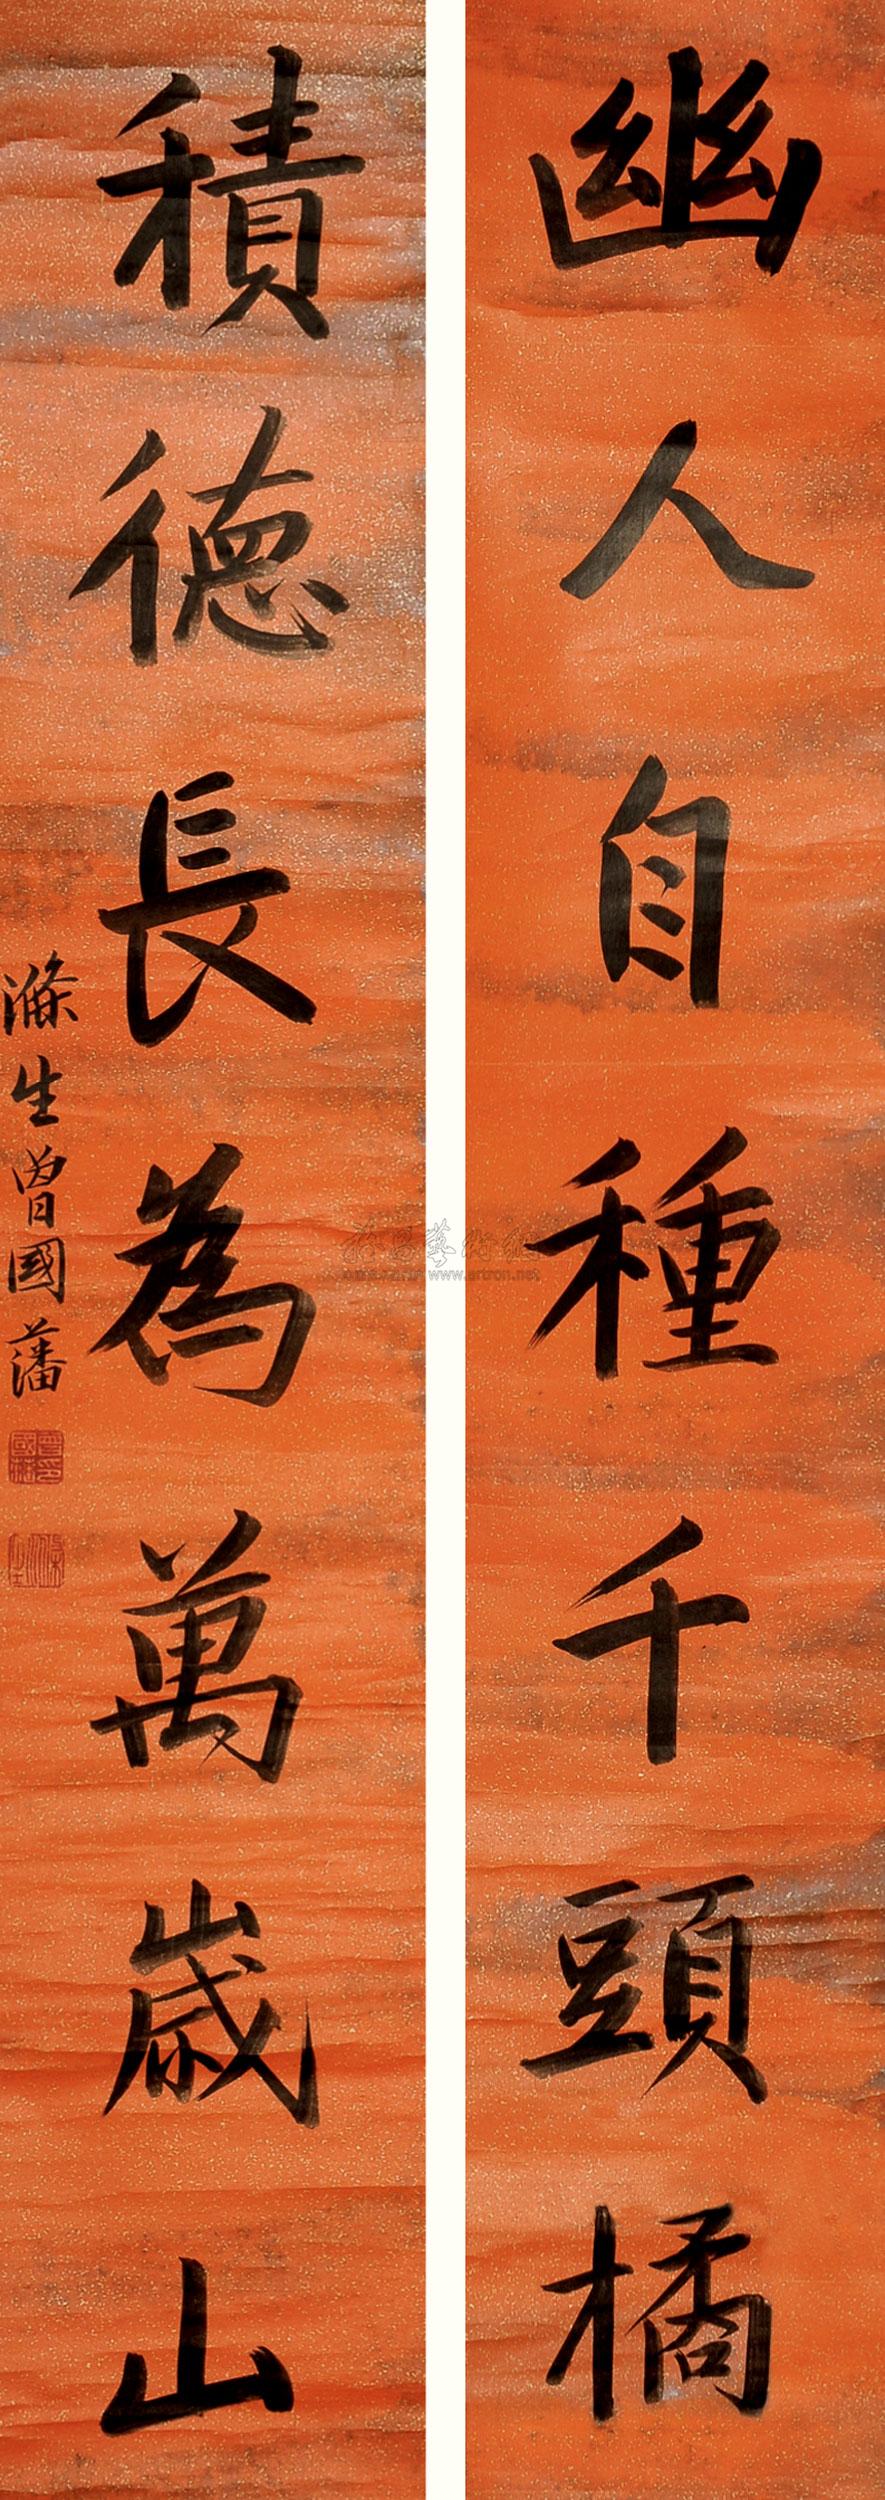 幽人自種千頭橘
積德長為萬歲山
滌生曾國藩
www.artron.net